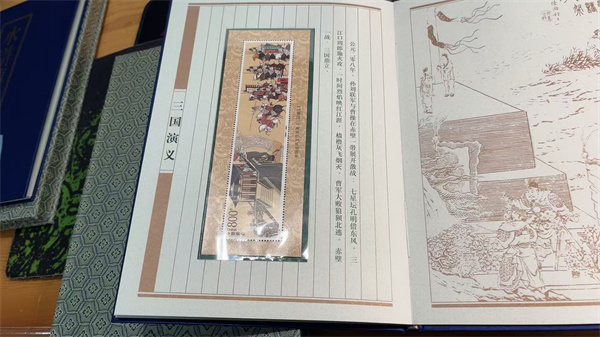 公元二零八年，孙刘联军与曹操在赤壁一带展开激战。七星坛孔明借东风，三
江口周郎施火攻，一时间烈焰映红江涯，樯橹灰飞烟灭，曹军大败狼狈北逃，赤壁
一战，三国鼎立。
三国演义
800
水